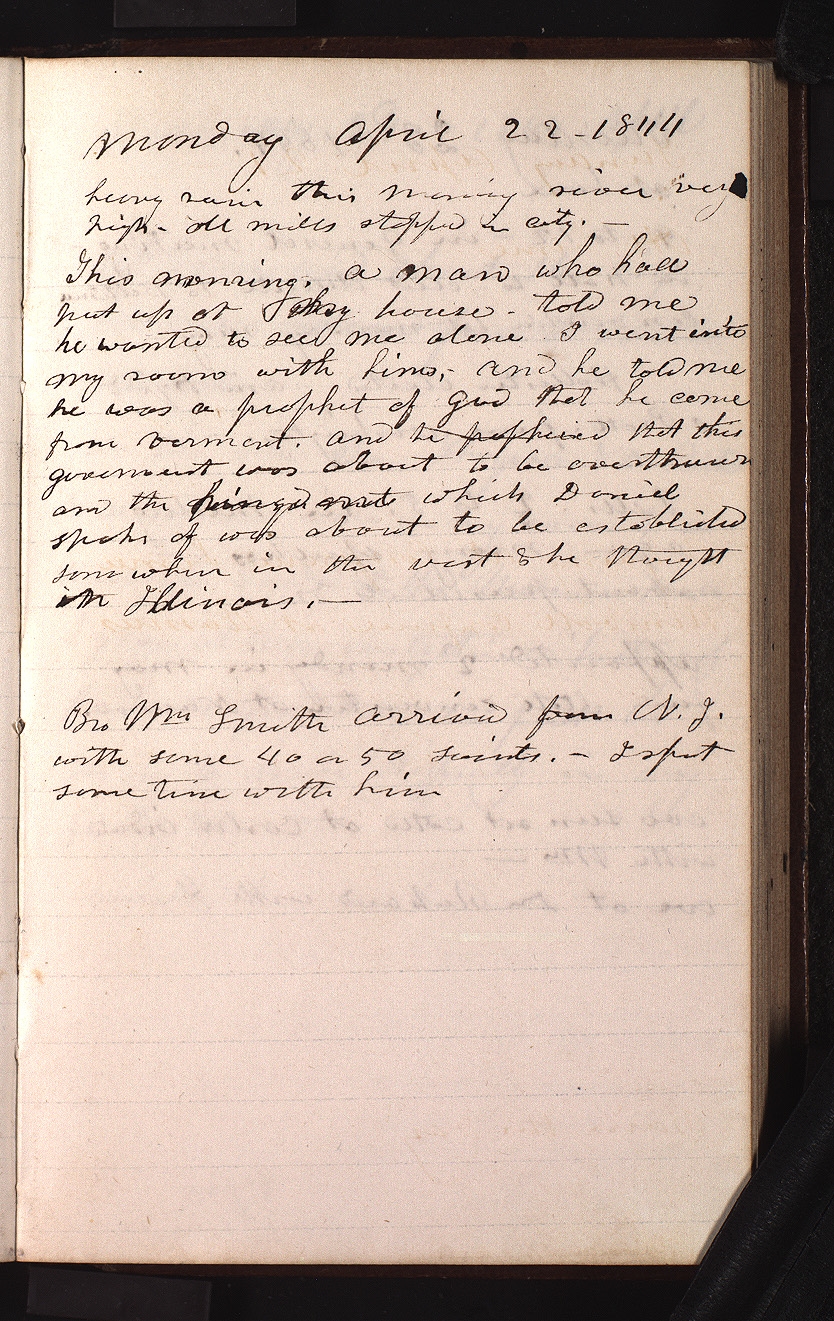 Monday April 22 - 1844
heavy rain this morning river very
high - all mills stopped in city. —
This morning. a man who had
put up at my house - told me
he wanted to see me alone I went into
my room with him, - and he told me
he was a prophet of God that he came
from vermont. and he prophesied that this
government was about to be overthrown
and the kingdom which Daniel
spoke of was about to be established
somewhere in the west & he thought
in Illinois. —
Bro Wm Smith arrived from N. J.
with some 40 or 50 saints. - I spent
some time with him